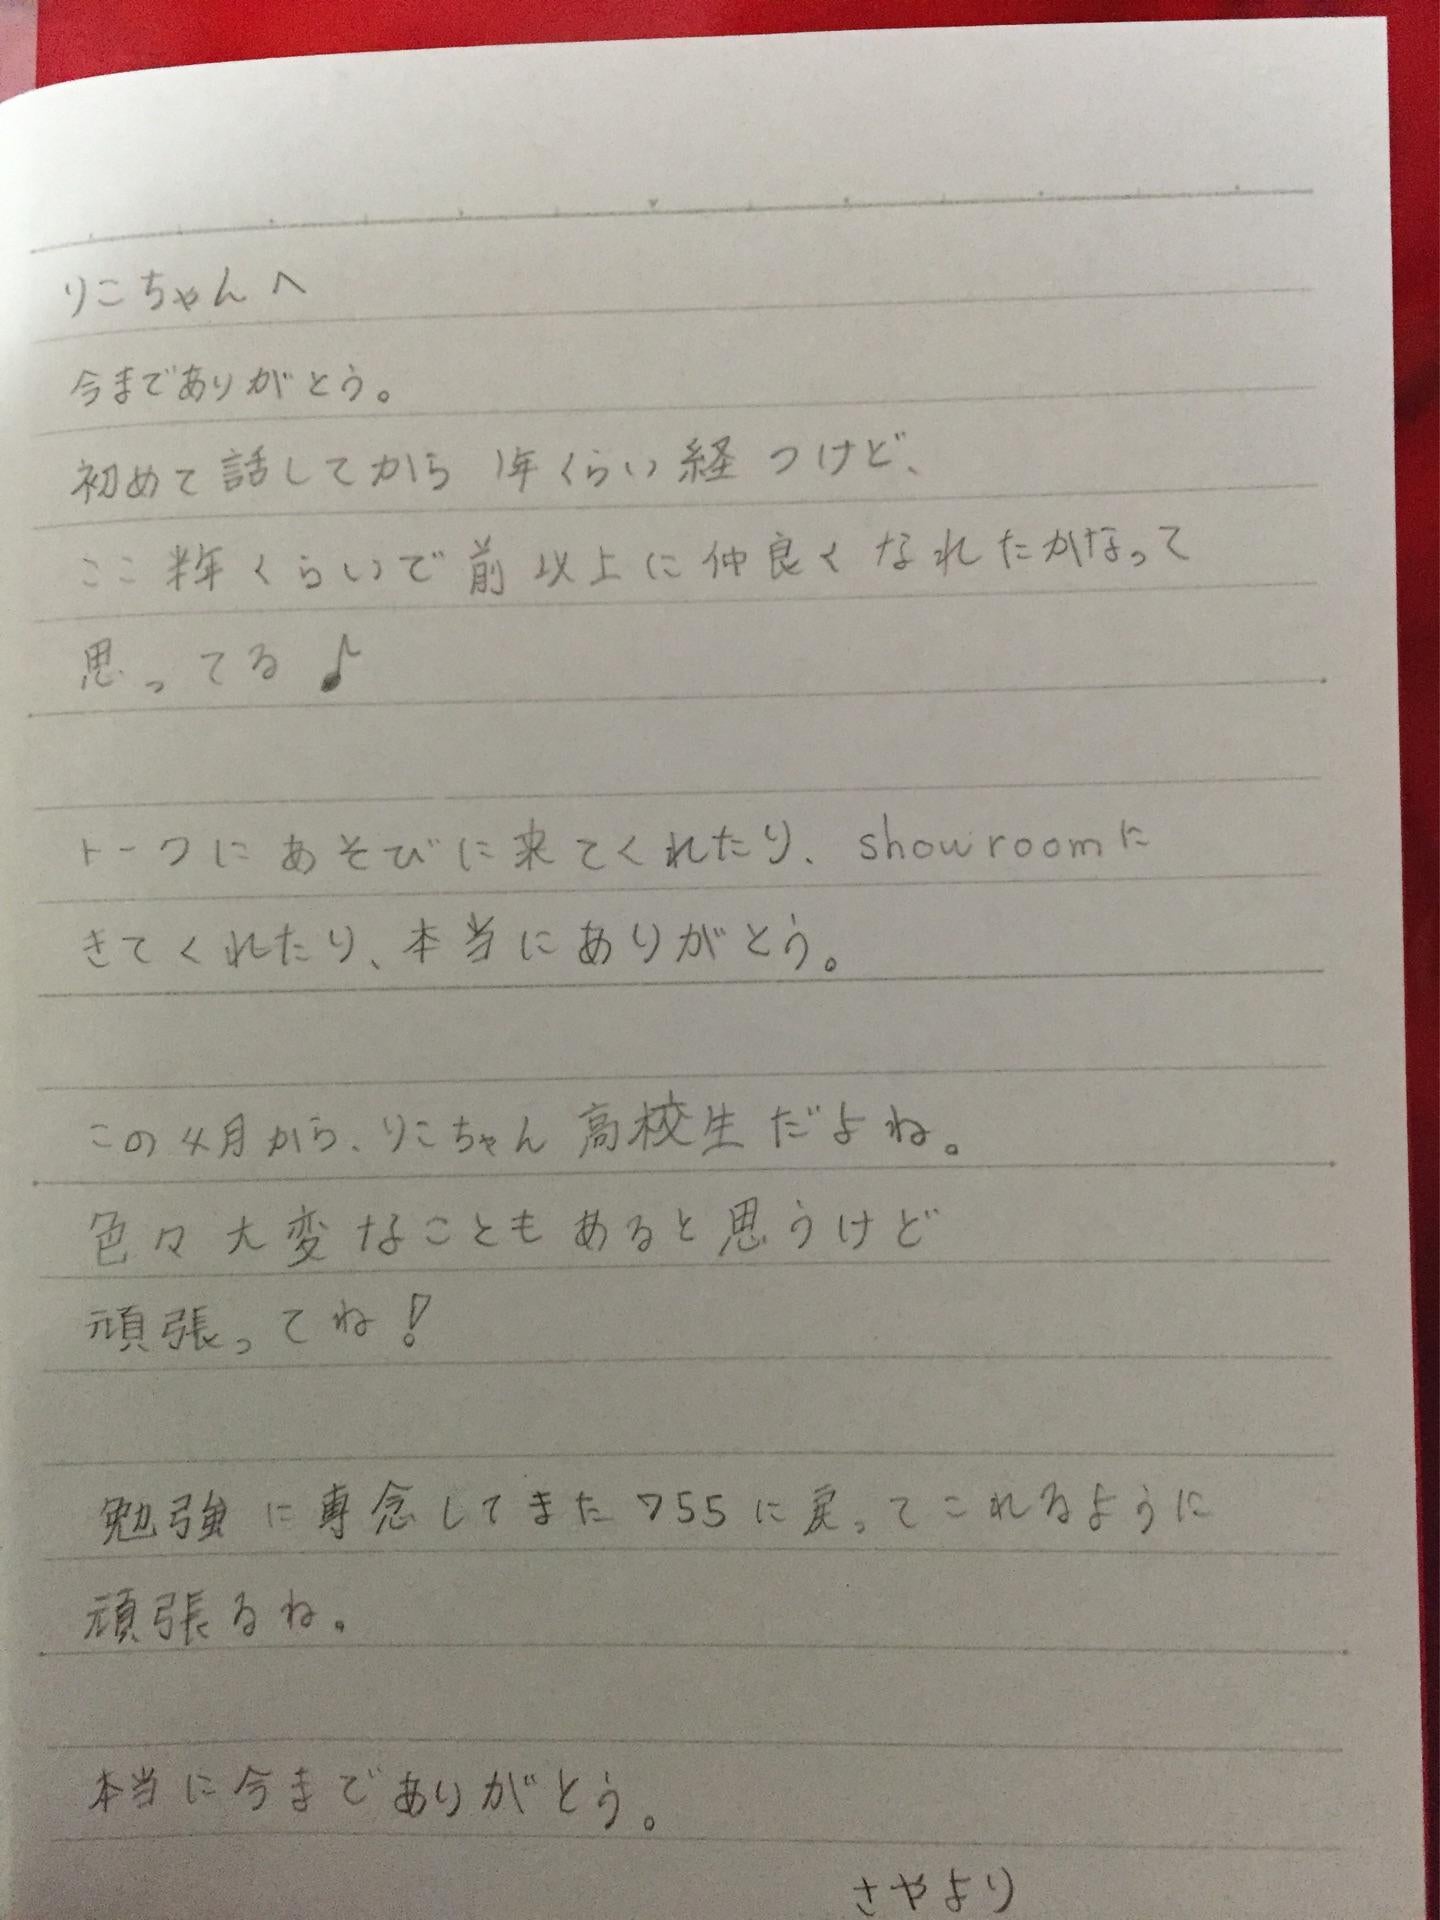 りこちゃんへ
今までありがとう。
初めて話してから1年くらい経つけど、
ここ半年くらいで前以上に仲良くなれたかなって
思ってる♪
トークにあそびに来てくれたり、showroomに
きてくれたり、本当にありがとう。
この4月から、りこちゃん高校生だよね。
色々大変なこともあると思うけど
頑張ってね!
勉強に専念してまた755に戻ってこれるように
頑張るね。
本当に今までありがとう。
さやより